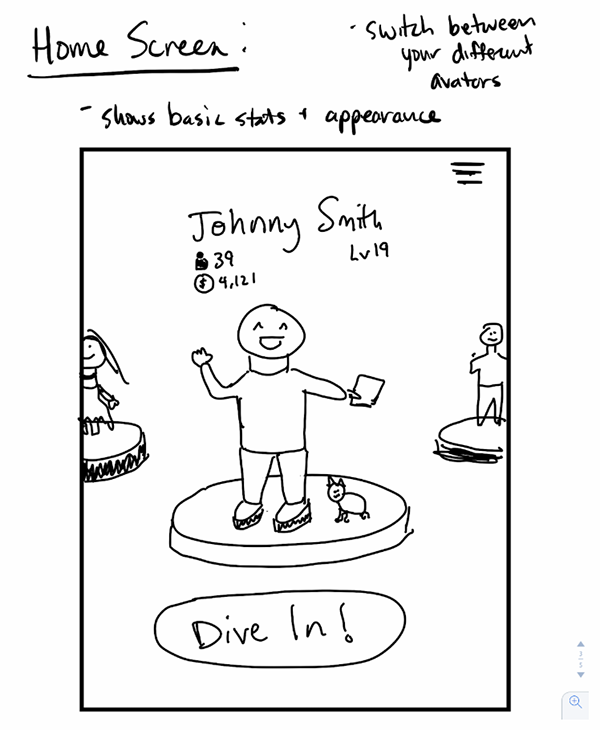 Home Screen:
- switch between
your different
avators
- shows basic stats + appearance
Johnny Smith
39
Lv 19
$ 4,121
Dive In!
2/5